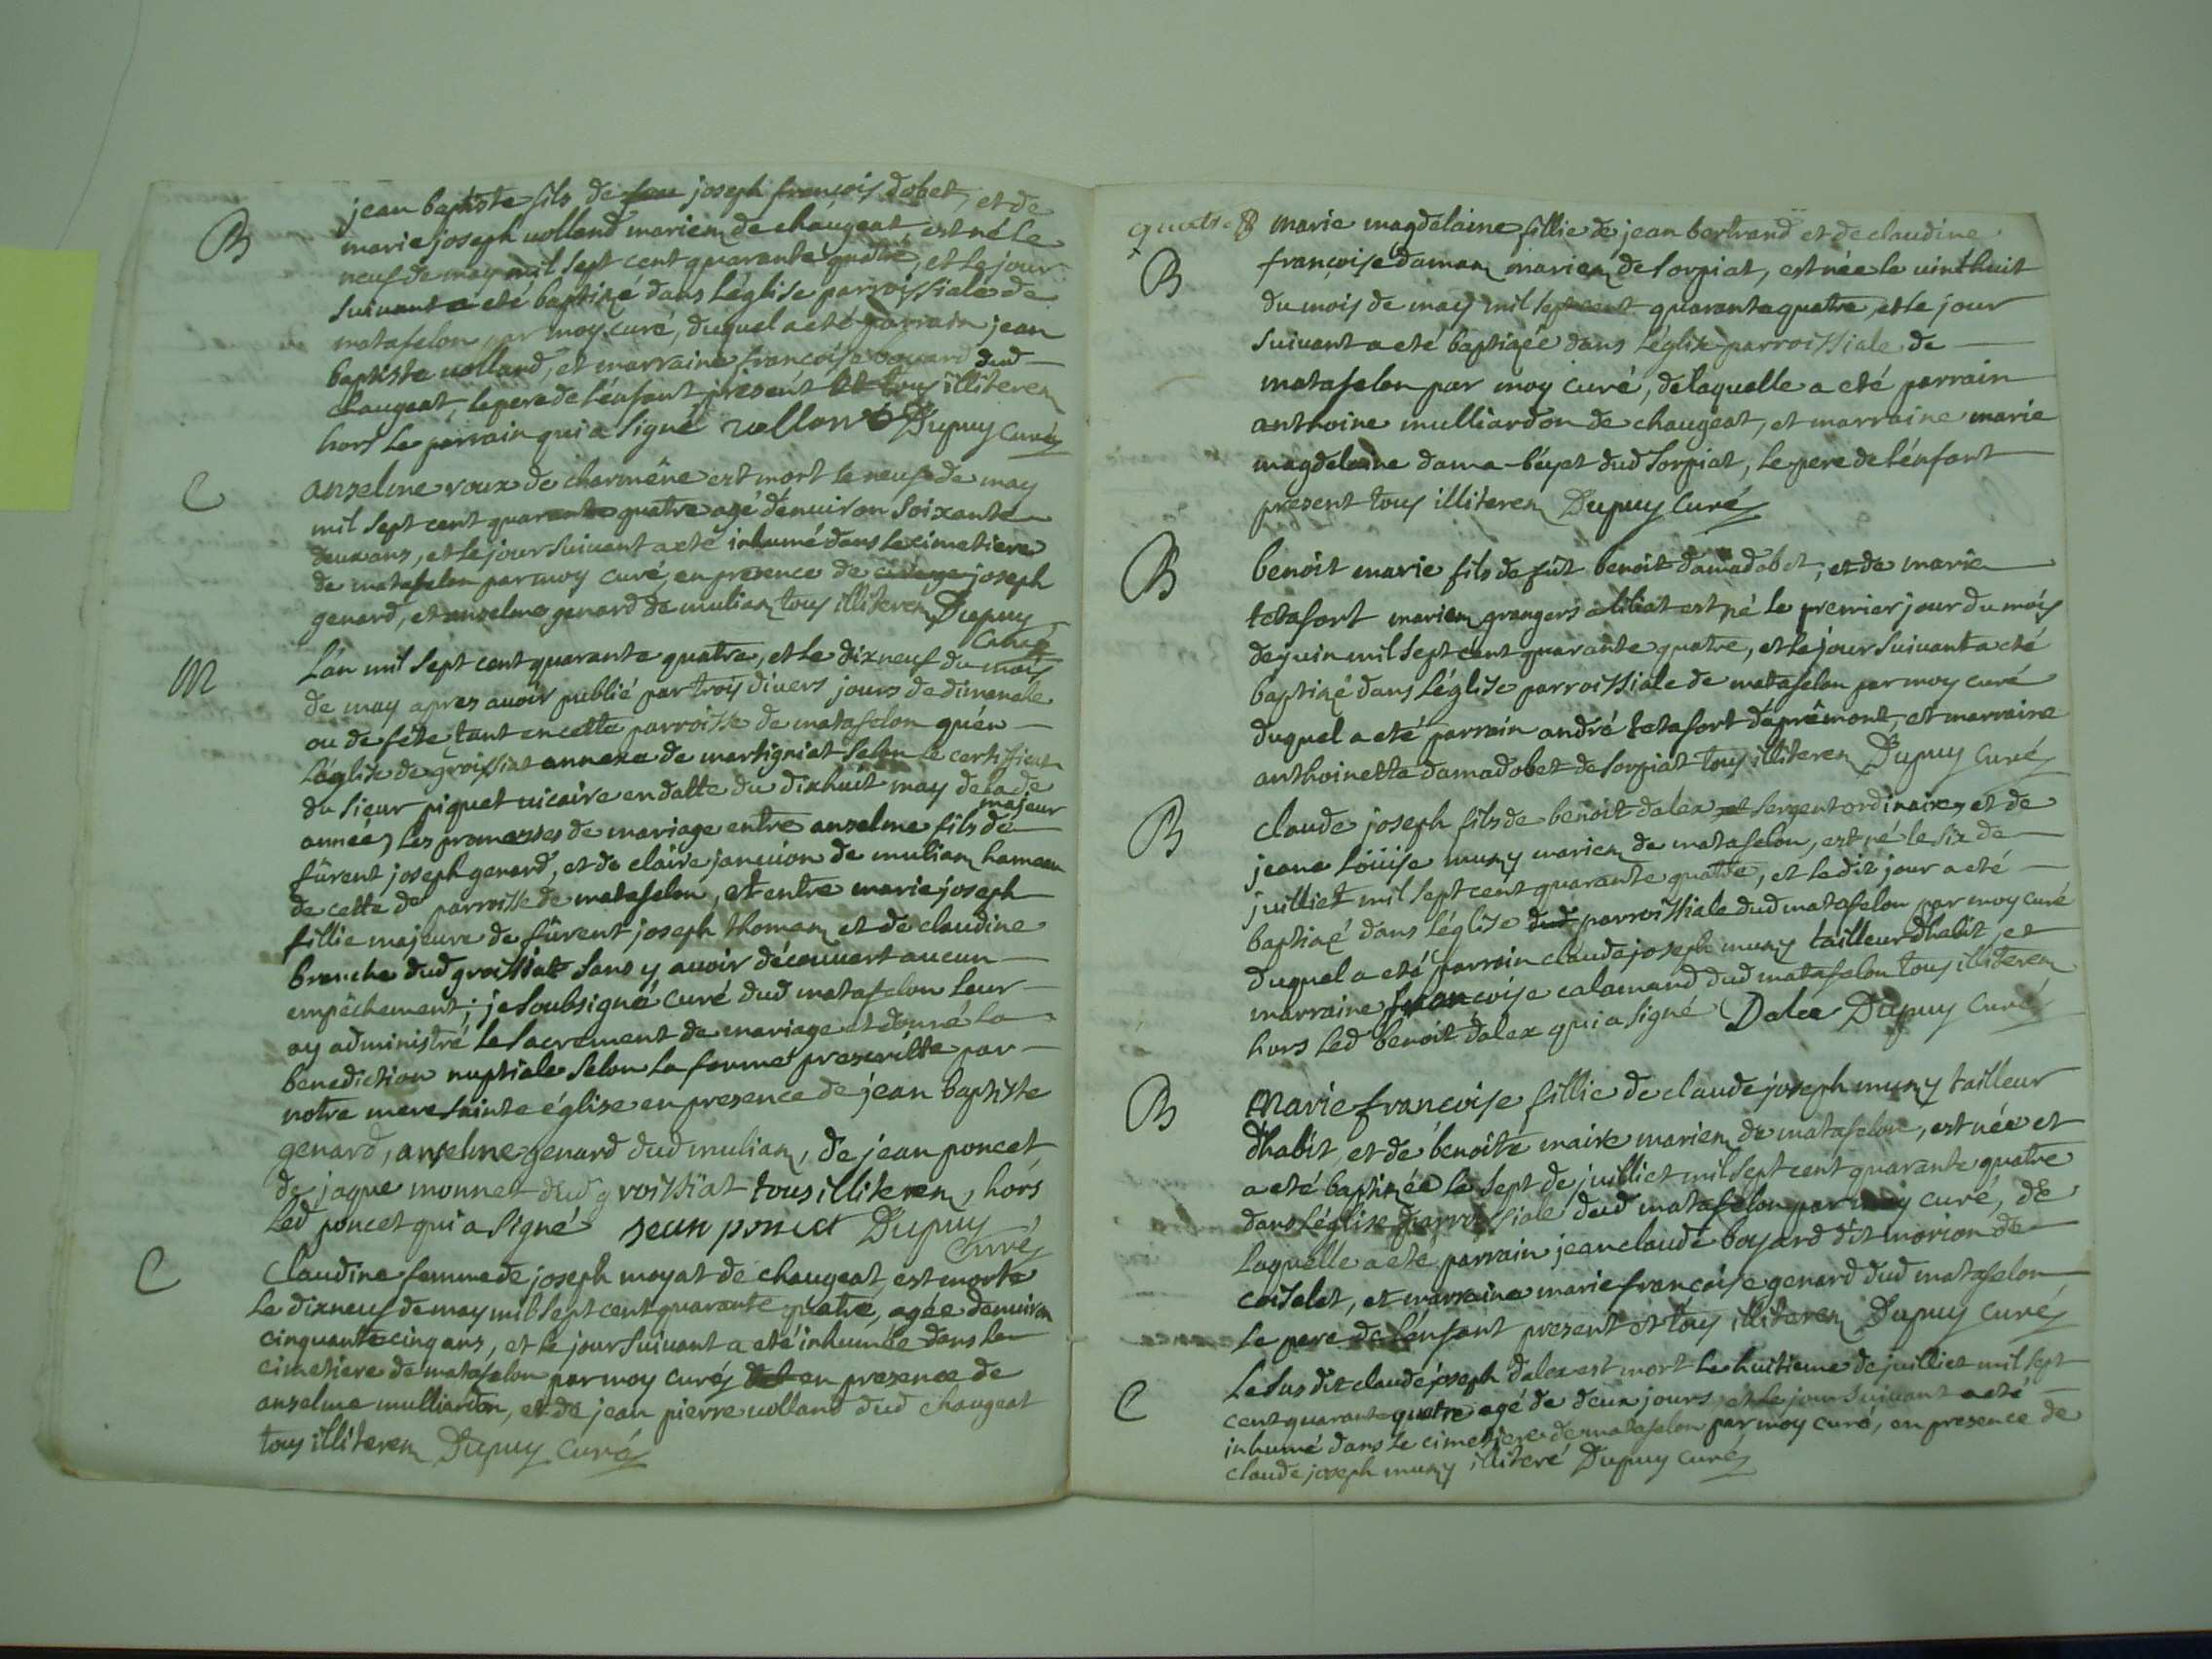 B
jean baptiste fils de feu joseph françois dobet, et de
marie joseph uolland mariez de chaugeat est né le
neuf de may mil sept cent quarante quatre, et le jour
suiuant a eté baptizé dans l'église parroissiale de
matafelon par moy curé, duquel a eté parrain jean
baptiste uolland, et marraine françoise bouard dud
chaugeat, le pere de l'enfant present et tous illiterez
hors le parrain qui a signé uollant Dupuy curé
C
anselme roux de charmêne est mort le neuf de may
mil sept cent quarante quatre agé d'enuiron soixante
deux ans, et le jour suiuant a eté inhumé dans le cimetiere
de matafelon par moy curé, en presence de joseph
genard, et anselme genard de mulian tous illiterez Dupuy
curé
M
L'an mil sept cent quarante quatre, et le dixneuf du mois
de may apres auoir publié par trois diuers jours de dimenche
ou de fête tant en cette parroisse de matafelon qu'en
l'église de groissiat annexe de martigniat selon le certificat
du sieur piquet uicaire en datte du dixhuit may de lade
année, les promesses de mariage entre anselme fils majeur de
fûrent joseph genard, et de claire janvion de mulian hameau
de cette de parroisse de matafelon, et entre marie joseph
fillie majeure de fûrent joseph thomaz et de claudine
brenche dud groissiat sans y auoir découuert aucun
empêchement; je soubsigné curé dud matafelon leur
ay administré le sacrement de mariage et donné la
benediction nuptiale selon la forme prescritte par
notre mere sainte église en presence de jean baptiste
genard, anselme genard dud mulian, de jean poncet
de jaque monnet dud groissïat tous illiterez, hors
led poncet qui a signé jean poncet Dupuy
curé
C
Claudine femme de joseph moyat de chaugeat, est morte
le dixneuf de may mil sept cent quarante quatre, agée d'enuiron
cinquante cinq ans, et le jour suiuant a eté inhumée dans le
cimetiere de matafelon par moy curé en presence de
anselme mulliardon, et de jean pierre uolland dud chaugeat
tous illiterez Dupuy curé
quatre
B
Marie magdelaine fillie de jean bertrand et de claudine
françoise damaz mariez de sorpiat, est née le uinthuit
du mois de may mil sept cent quarante quatre, et le jour
suiuant a eté baptizée dans l'église parroissiale de
matafelon par moy curé, de laquelle a eté parrain
anthoine mulliardon de chaugeat, et marraine marie
magdelaine dama-béyet dud sorpiat, le pere de l'énfant
present tous illiterez Dupuy curé
B
benoit marie fils de fût benoit damadobet, et de marie
tetafort mariez grangers a est né le premier jour du mois
de juin mil sept cent quarante quatre, et le jour suiuant a eté
baptizé dans l'église parroissiale de matafelon par moy curé
duquel a eté parrain andré tetafort d'aprêmont, et marraine
anthoinette damadobet de sorpiat tous illiterez Dupuy curé
B
Claude joseph fils de benoit dalex et sergent ordinaire, et de
jeane loüise muzy mariez de matafelon, est né le six de
juilliet mil sept cent quarante quatre, et ledit jour a eté
baptizé dans l'église dud parroissiale dud matafelon par moy curé
duquel a eté parrain claude joseph muzy tailleur dhabit, et
marraine françoise calamand dud matafelon tous illiterez
hors led benoit dalex qui a signé Dalex Dupuy curé
B
Marie françoise fillie de claude joseph muzy tailleur
dhabit, et de benoite maire mariez de matafelon, est née et
a eté baptizée le sept de juilliet mil sept cent quarante quatre
dans l'église parroissiale dud matafelon par moy curé, de
laquelle a ete parrain jean claude boyard dit morion de
coiselet, et marraine marie françoise genard dud matafelon
le pere de l'énfant present et tous illiterez Dupuy curé
C
Le susdit claude joseph dalex est mort le huitieme de juilliet mil sept
cent quarante quatre agé de deux jours et le jour suiuant a eté
inhumé dans le cimetiere de matafelon par moy curé, en presence de
claude joseph muzy illiteré Dupuy curé